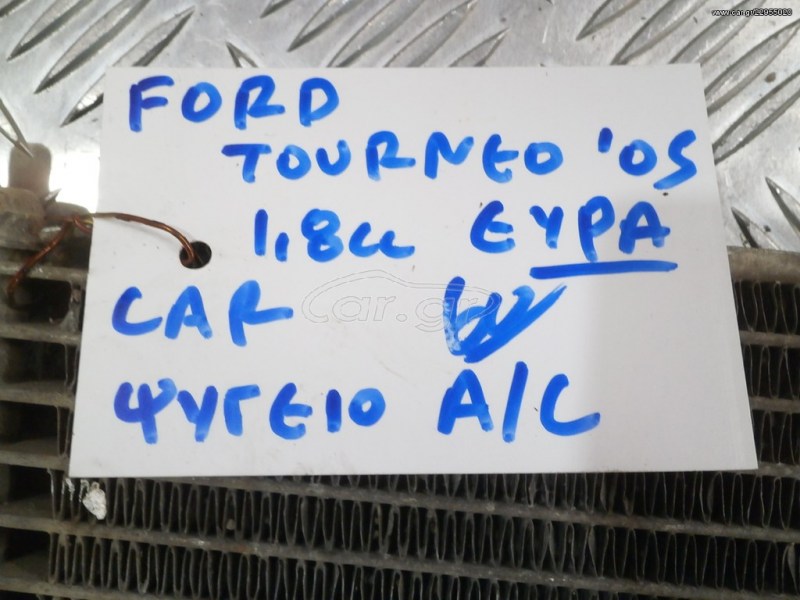 www.car.gr/22955028
FORD
TOURNEO '05
1,8cc ΕΥΡΑ
CAR
car.gr
ΨΥΓΕΙΟ A/C